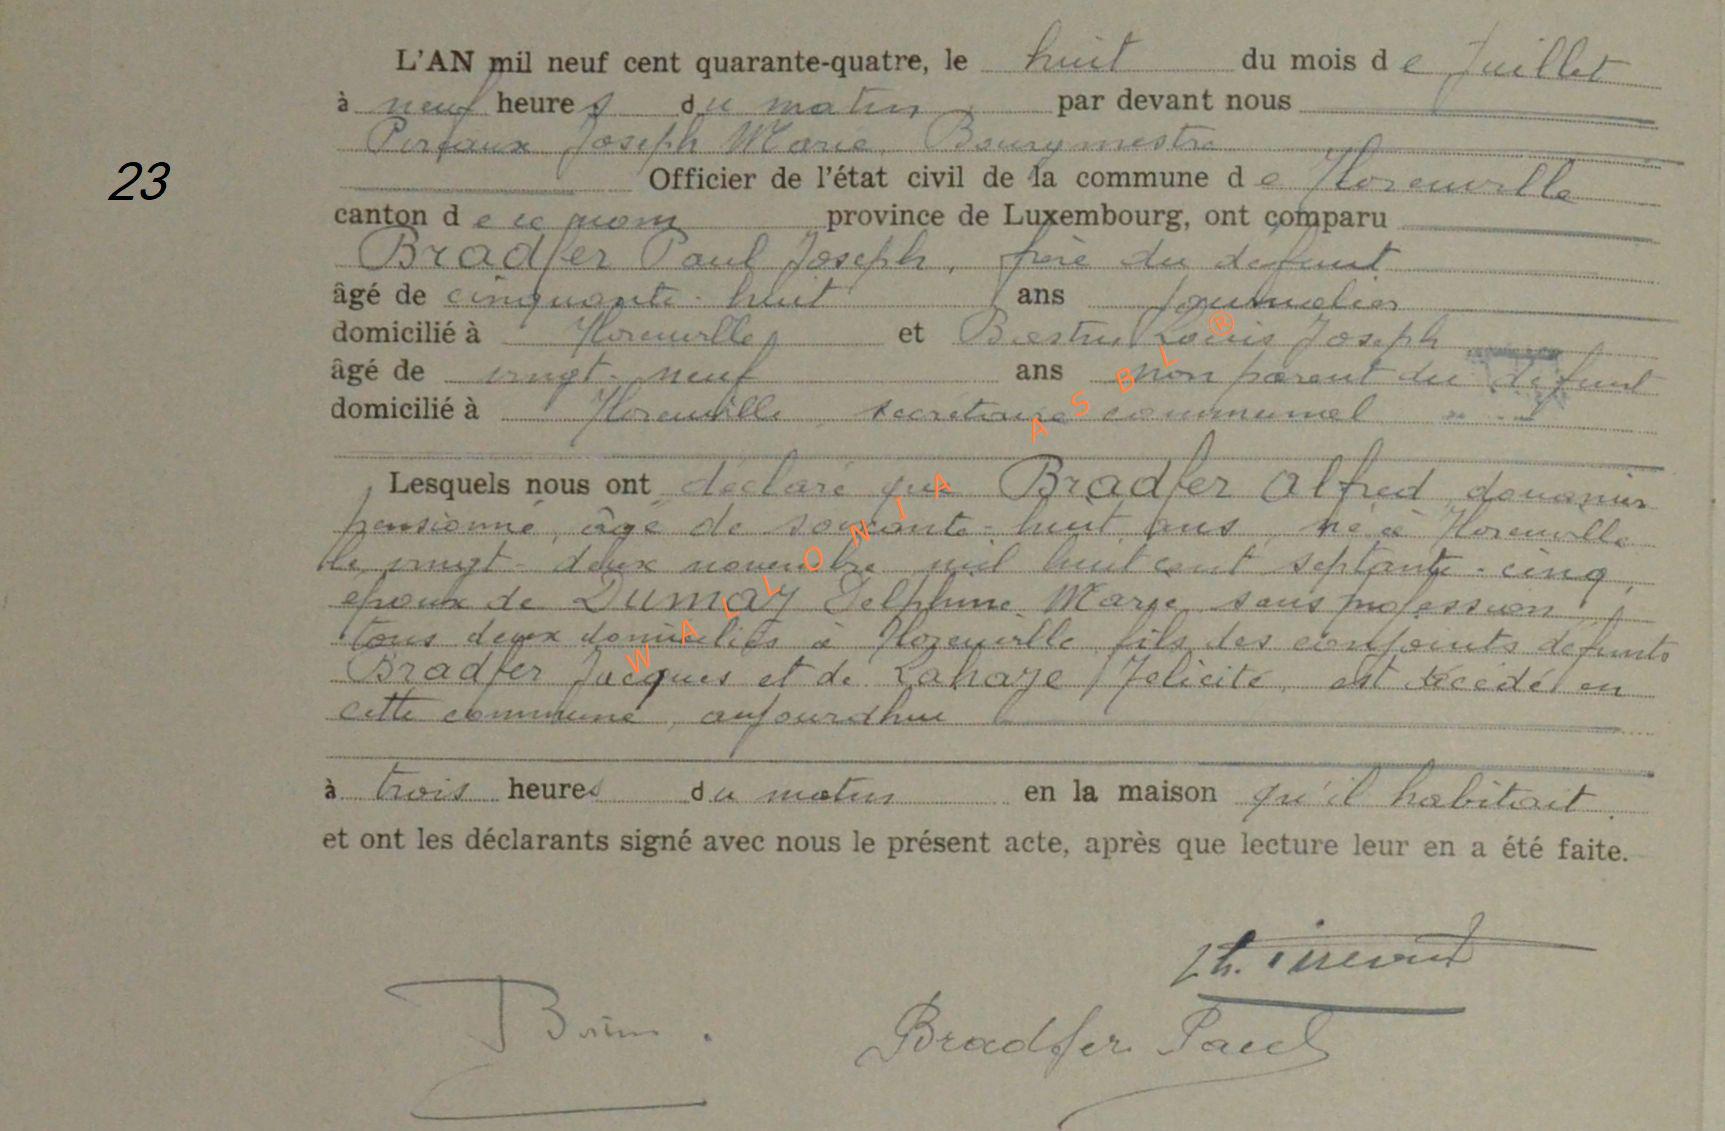 L'AN mil neuf cent quarante-quatre, le huit du mois de Juillet
à neuf heures du matin par devant nous
Joseph Marie, Bourgmestre
23
Officier de l'état civil de la commune de Florenville
canton de ce nom province de Luxembourg, ont comparu
Bradfer Paul Joseph, frère du défunt
âgé de cinquante-huit ans journalier
domicilié à Florenville et Louis Joseph
âgé de vingt-neuf ans non parent du défunt
domicilié à Florenville, secrétaire communal
Lesquels nous ont déclaré que Bradfer Alfred, douanier
pensionné, âgé de soixante-huit ans, né à Florenville
le vingt-deux novembre mil huit cent septante-cinq,
époux de Dumay Delphine Marie, sans profession,
tous deux domiciliés à Florenville, fils des conjoints défunts
Bradfer Jacques et de Lahaye Félicité, est décédé en
cette commune, aujourdhui
à trois heures du matin en la maison qu'il habitait
et ont les déclarants signé avec nous le présent acte, après que lecture leur en a été faite.
Bradfer Paul
WALLONIA ASBL ®